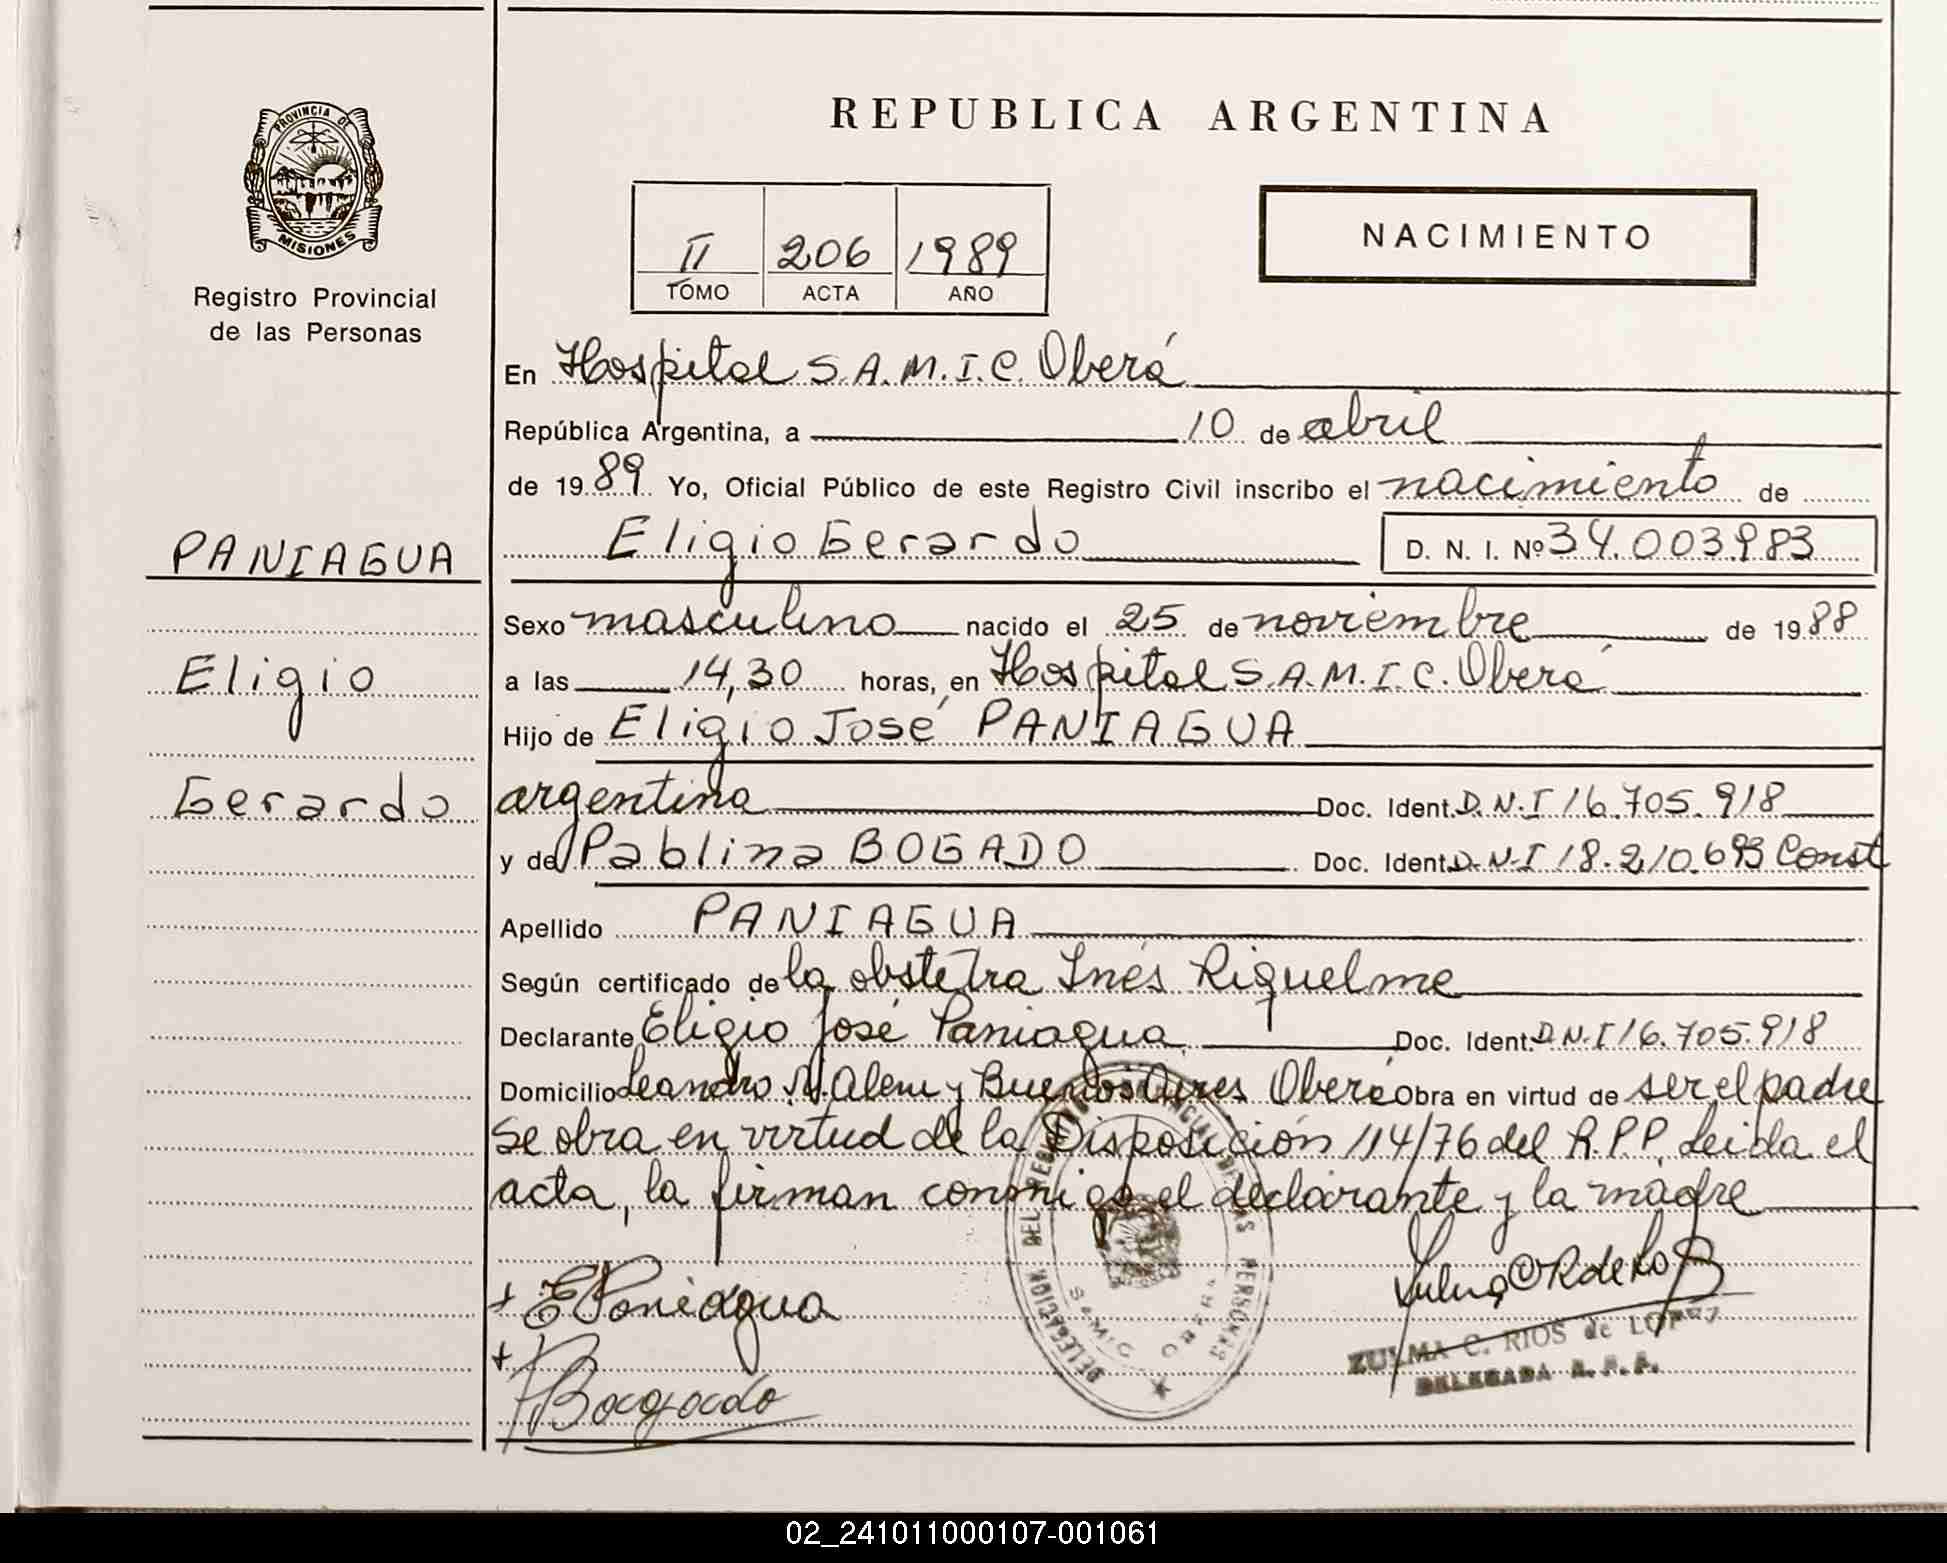 REPUBLICA ARGENTINA
PROVINCIA DE
MISIONES
Registro Provincial
de las Personas
NACIMIENTO
II 206 1989
TOMO ACTA AÑO
En Hospital S.A.M.I.C. Oberá
República Argentina, a 10 de abril
de 1989 Yo, Oficial Público de este Registro Civil inscribo el nacimiento de
PANIAGUA
Eligio Gerardo D. N. I. Nº 34.003.983
Sexo masculino nacido el 25 de noviembre de 1988
Eligio
a las 14,30 horas, en Hospital S.A.M.I.C. Oberá
Hijo de Eligio José PANIAGUA
Gerardo
argentina Doc. Ident. D.N.I 16.705.918
y de Pablina BOGADO Doc. Ident. D.N.I 18.210.693 Const
Apellido PANIAGUA
Según certificado de la obstetra Inés Riquelme
Declarante Eligio José Paniagua Doc. Ident. D.N.I 16.705.918
Domicilio Leandro N. Alem y Buenos Aires Oberá Obra en virtud de ser el padre
Se obra en virtud de la Disposición 114/76 del R.P.P. Leida el
acta, la firman conmigo el declarante y la madre
+ E Paniagua
+
DELEGACION DEL REGISTRO PROVINCIAL DE LAS PERSONAS
SAMIC OBERA
ZULMA C. RIOS de LOPEZ
DELEGADA
02_241011000107-001061